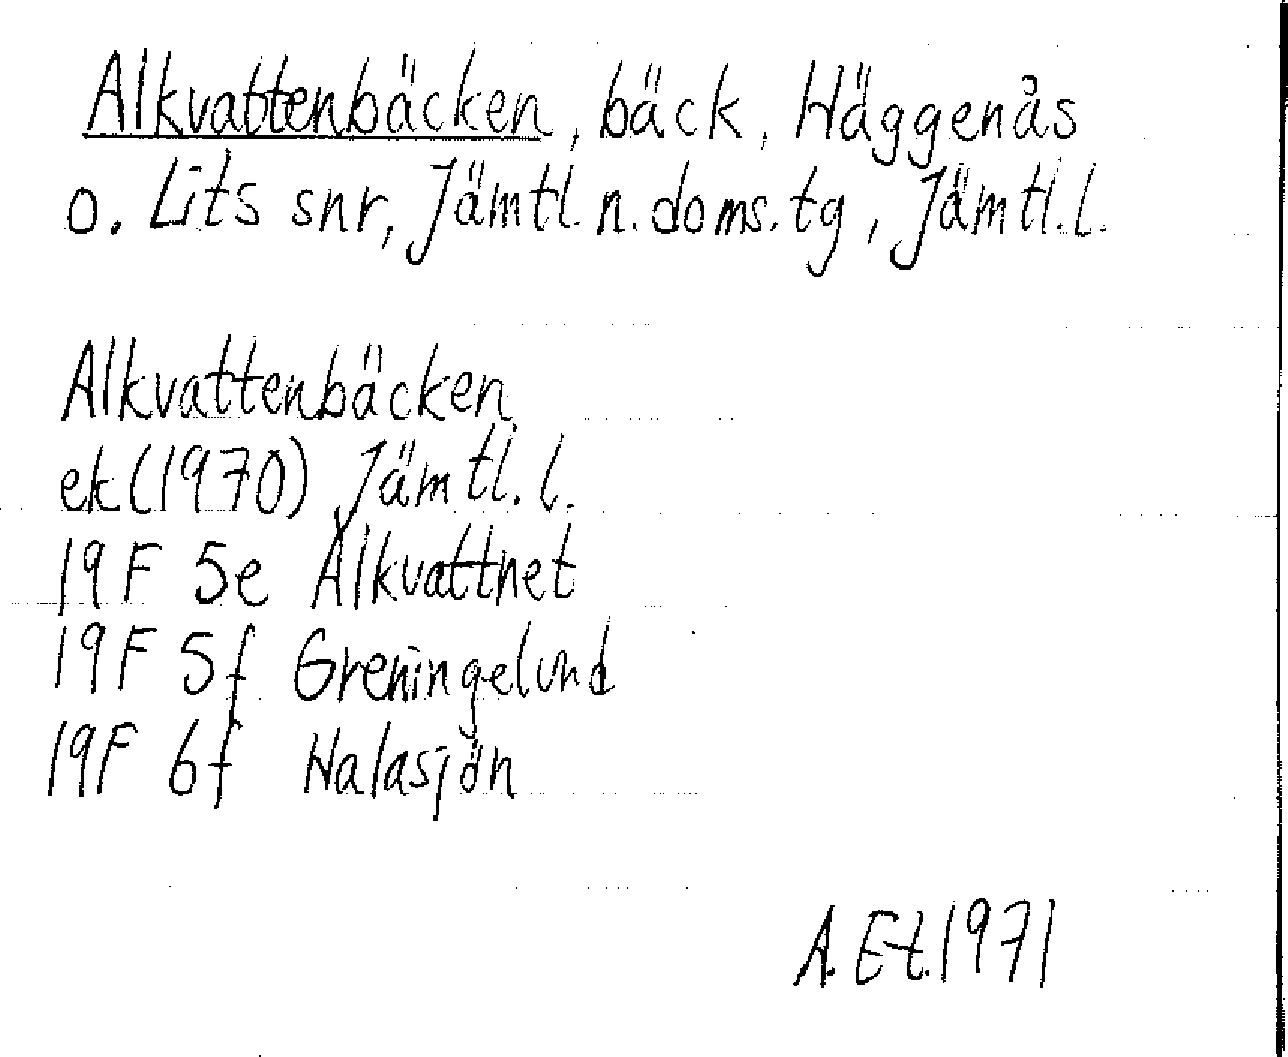 Alkvattenbäcken, bäck, Häggenås
o. Lits snr, Jämtl. n. doms. tg, Jämtl. l.
Alkvattenbäcken
ek (1970) Jämtl. l.
19F 5e Alkvattnet
19F 5f Greningelund
19F 6f Halasjön
A. Et. 1971